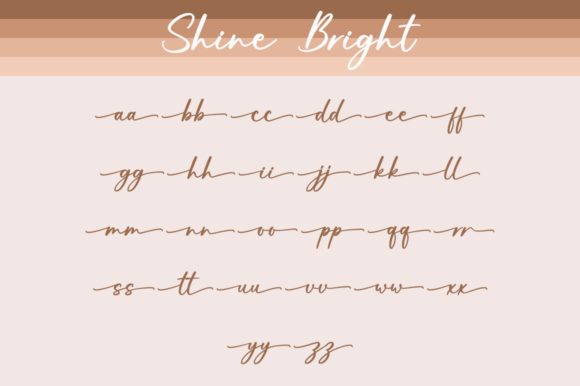 Shine Bright
aa bb cc dd ee ff
gg hh ii jj kk ll
mm nn oo pp qq rr
ss tt uu vv ww xx
yy zz